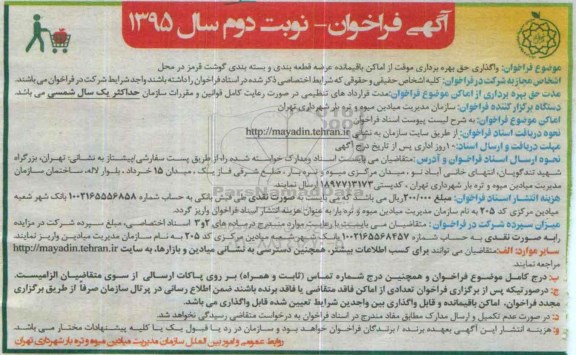 آگهی فراخوان - نوبت دوم سال ۱۳۹۵
موضوع فراخوان: واگذاری حق بهره برداری موقت از اماکن باقیمانده عرضه قطعه بندی و بسته بندی گوشت قرمز در محل
اشخاص مجاز به شرکت در فراخوان: کلیه اشخاص حقیقی و حقوقی که شرایط اختصاصی ذکر شده در اسناد فراخوان را داشته باشند واجد شرایط شرکت در فراخوان می باشند.
مدت حق بهره برداری از اماکن موضوع فراخوان: مدت قرارداد های تنظیمی در صورت رعایت کامل قوانین و مقررات سازمان حداکثر یک سال شمسی می باشد.
دستگاه برگزار کننده فراخوان: سازمان مدیریت میادین میوه و تره بار شهرداری تهران
اماکن موضوع فراخوان: به شرح لیست پیوست اسناد فراخوان
نحوه دریافت اسناد فراخوان: از طریق سایت سازمان به نشانی http://mayadin.tehran.ir
مهلت دریافت و ارسال اسناد: ۱۰ روز اداری پس از تاریخ درج آگهی
نحوه ارسال اسناد فراخوان و آدرس: متقاضیان می بایست اسناد و مدارک خواسته شده را از طریق پست سفارشی/پیشتاز به نشانی: تهران، بزرگراه
شهید تندگویان، انتهای خانی آباد نو، میدان مرکزی میوه و تره بار، ضلع شرقی فاز یک، میدان ۱۵ خرداد، بلوار لاله، ساختمان سازمان
مدیریت میادین میوه و تره بار شهرداری تهران، کدپستی ۱۸۹۷۷۱۳۱۷۳ ارسال نمایند.
هزینه انتشار اسناد فراخوان: مبلغ ۲۰۰/۰۰۰ ریال می باشد که می بایست به صورت نقدی طی فیش بانکی به حساب شماره ۱۰۰۲۱۶۵۵۵۶۸۵۸ بانک شهر شعبه
میادین مرکزی کد ۲۰۵ به نام سازمان مدیریت میادین میوه و تره بار به عنوان هزینه انتشار اسناد فراخوان واریز گردد.
میزان سپرده شرکت در فراخوان: متقاضیان می بایست با رعایت موارد مندرج در ماده های ۲ و ۳ اسناد اختصاصی، مبلغ سپرده شرکت در مزایده
را به صورت نقدی به حساب شماره ۱۰۰۲۱۶۵۵۶۸۴۵۷ بانک شهر شعبه میادین مرکزی کد ۲۰۵ به نام سازمان مدیریت میادین واریز نمایند.
سایر موارد: الف: متقاضیان می توانند برای کسب اطلاعات بیشتر، همچنین دسترسی به نشانی میادین و بازارها، به سایت http://mayadin.tehran.ir
مراجعه نمایند.
ب: درج کامل موضوع فراخوان و همچنین درج شماره تماس (ثابت و همراه) بر روی پاکات ارسالی از سوی متقاضیان الزامیست.
ج: درصورتیکه پس از برگزاری فراخوان تعدادی از اماکن فاقد متقاضی یا فاقد برنده باشند ضمن اطلاع رسانی در پرتال سازمان صرفاً از طریق برگزاری
مجدد فراخوان، اماکن باقیمانده و قابل واگذاری بین واجدین شرایط تعیین شده قابل واگذاری می باشد.
د: در صورت عدم تکمیل و ارسال مدارک مطابق مفاد مندرج در اسناد فراخوان به درخواست متقاضی رسیدگی نخواهد شد.
و: هزینه انتشار این آگهی بعهده برنده / برندگان فراخوان خواهد بود و سازمان در رد یا قبول یک یا کلیه پیشنهادات مختار می باشد.
روابط عمومی و امور بین الملل سازمان مدیریت میادین میوه و تره بار شهرداری تهران